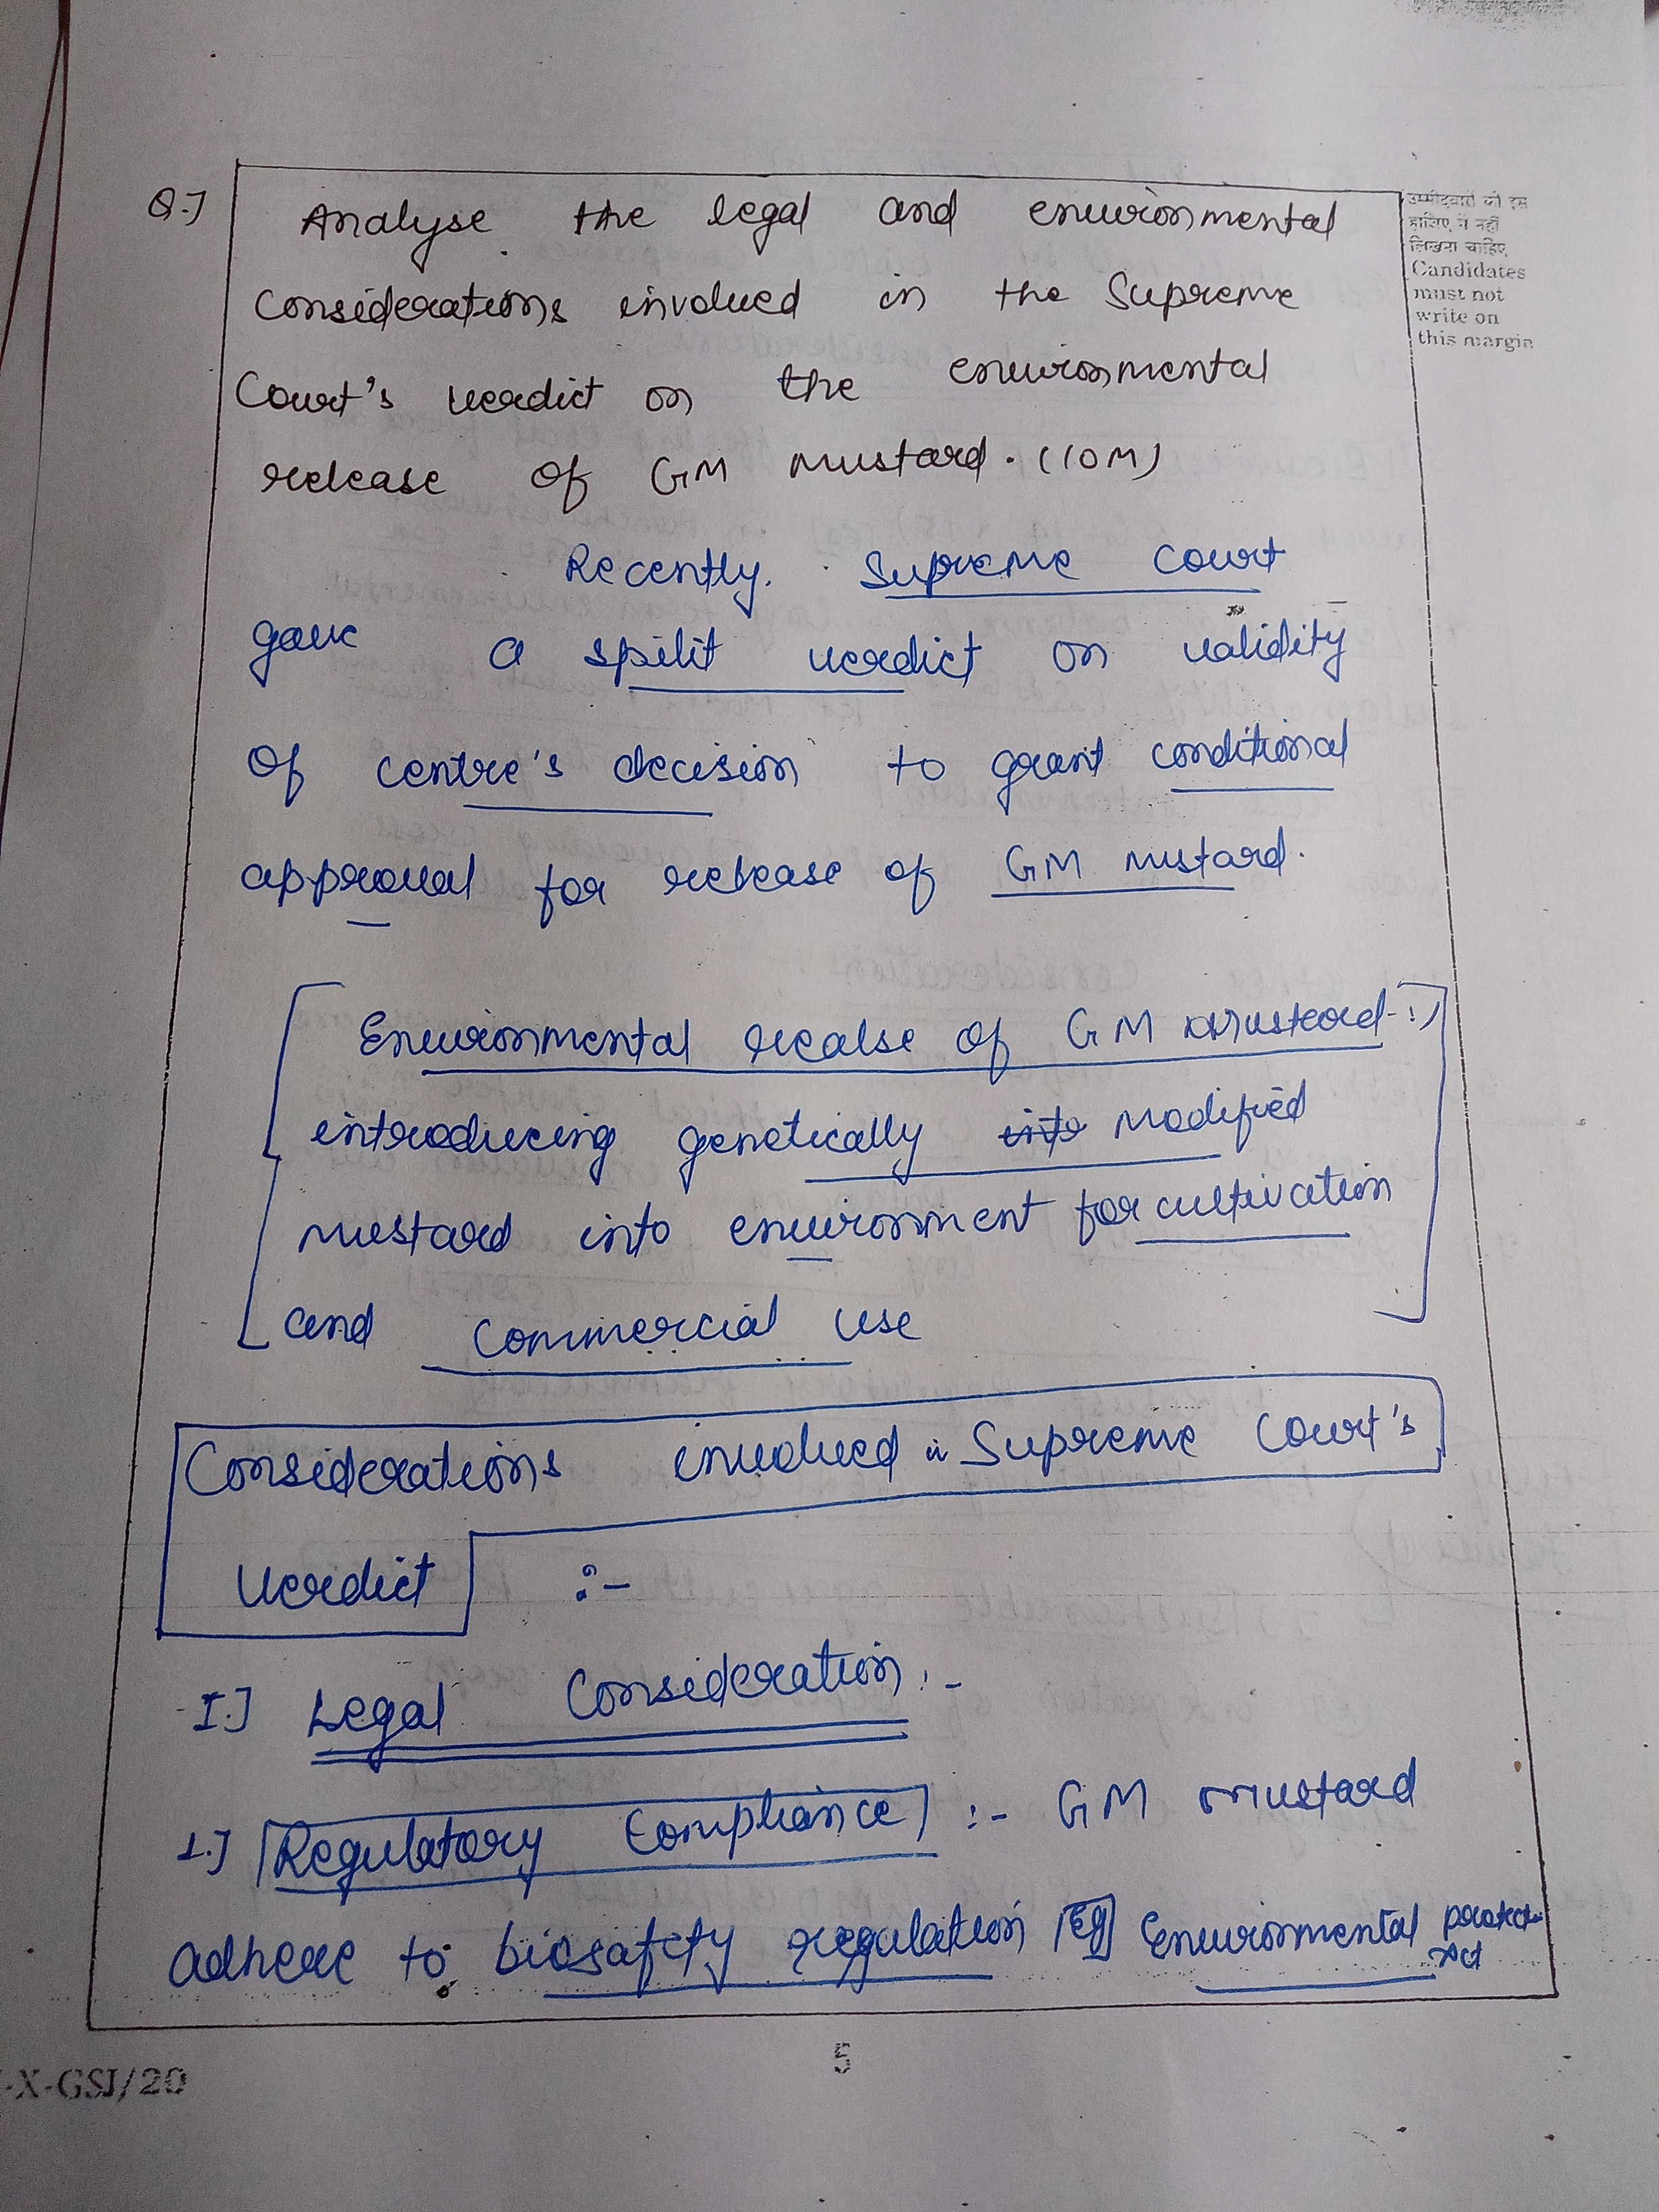 Q.]
Analyse the legal and environmental
उम्मीदवारों को इस
हाशिए में नहीं
लिखना चाहिए
Candidates
must not
write on
this margin
considerations involved in the Supreme
Court's verdict on the environmental
release of GM mustard. (10M)
Recently. Supreme Court
gave a spilit verdict on validity
of centre's decision to grant conditional
approval for release of GM mustard.
Environmental realse of GM Mustard :-
introducing genetically into modified
mustard into environment for cultivation
and commercial use
Considerations involved in Supreme Court's
Verdict :-
I.] Legal Consideration :-
1.] Regulatory Compliance :- GM mustard
adhere to biosafety regulation Eg Environmental protection
Act
5
-X-GSI/20